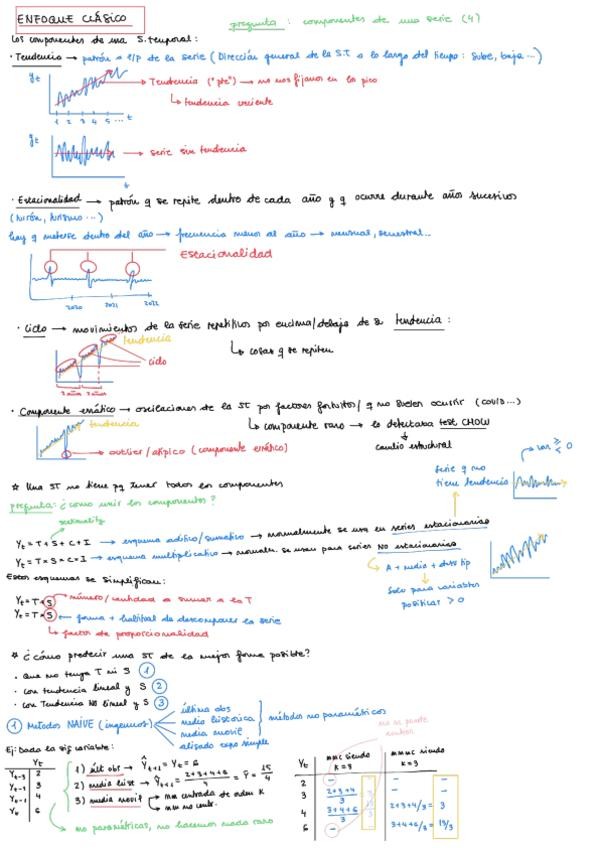 ENFOQUE CLÁSICO
pregunta: componentes de una serie (4)
Los componentes de una S. temporal:
· Tendencia → patrón a l/p de la serie (Dirección general de la S.T a lo largo del tiempo: sube, baja...)
yt
Tendencia ("pte") → no nos fijamos en los pico
↳ tendencia creciente
1 2 3 4 5 ... t
yt
→ serie sin tendencia
t
· Estacionalidad → patrón q se repite dentro de cada año y q ocurre durante años sucesivos
(turrón, turismo...)
hay q meterse dentro del año → frecuencia menor al año → mensual, semestral...
Estacionalidad
2020 2021 2022
· Ciclo → movimientos de la serie repetitivos por encima/debajo de su tendencia:
tendencia
↳ cosas q se repiten
ciclo
3 años 3 años
· Componente errático → oscilaciones de la ST por factores fortuitos/ q no suelen ocurrir (COVID...)
tendencia
↳ componente raro → lo detectaba test CHOW
cambio estructural
→ outlier/atípico (componente errático)
☆ Una ST no tiene pq tener todos los componentes
serie q no
tiene tendencia
pregunta: ¿cómo unir los componentes?
seasonality
Yt = T + S + C + I → esquema aditivo/sumativo → normalmente se usa en series estacionarias
Yt = T × S × C × I → esquema multiplicativo → normalm. se usan para series NO estacionarias
Estos esquemas se simplifican:
Yt = T + S → número/cantidad a sumar a la T
Yt = T × S ← forma + habitual de descomponer la serie
↳ factor de proporcionalidad
solo para variables
positivas > 0
☆ ¿Cómo predecir una ST de la mejor forma posible?
· Que no tenga T ni S ①
· con tendencia lineal y S ②
· con Tendencia NO lineal y S ③
① Métodos NAIVE (ingenuos)
última obs
media histórica
media móvil
alisado expo simple
métodos no paramétricos
Ej: Dada la sig variable:
Yt
Yt-3 2
Yt-2 3
Yt-1 4
Yt 6
1) últ obs → Ŷt+1 = Yt = 6
2) media hist → Ŷt+1 = 2+3+4+6/4 = Ȳ = 15/4
3) media móvil → mm centrada de orden K
→ mm no centr.
→ no paramétricas, no hacemos nada raro
no se puede
centrar
Yt | mmc siendo K=3 | mmnc siendo K=3
2 | - | -
3 | 2+3+4/3 3 | -
4 | 3+4+6/3 13/3 | 2+3+4/3 = 3
6 | - | 3+4+6/3 = 13/3